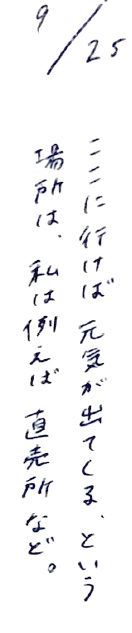 9/25
ここに行けば元気が出てくる、という
場所は、私は例えば直売所など。